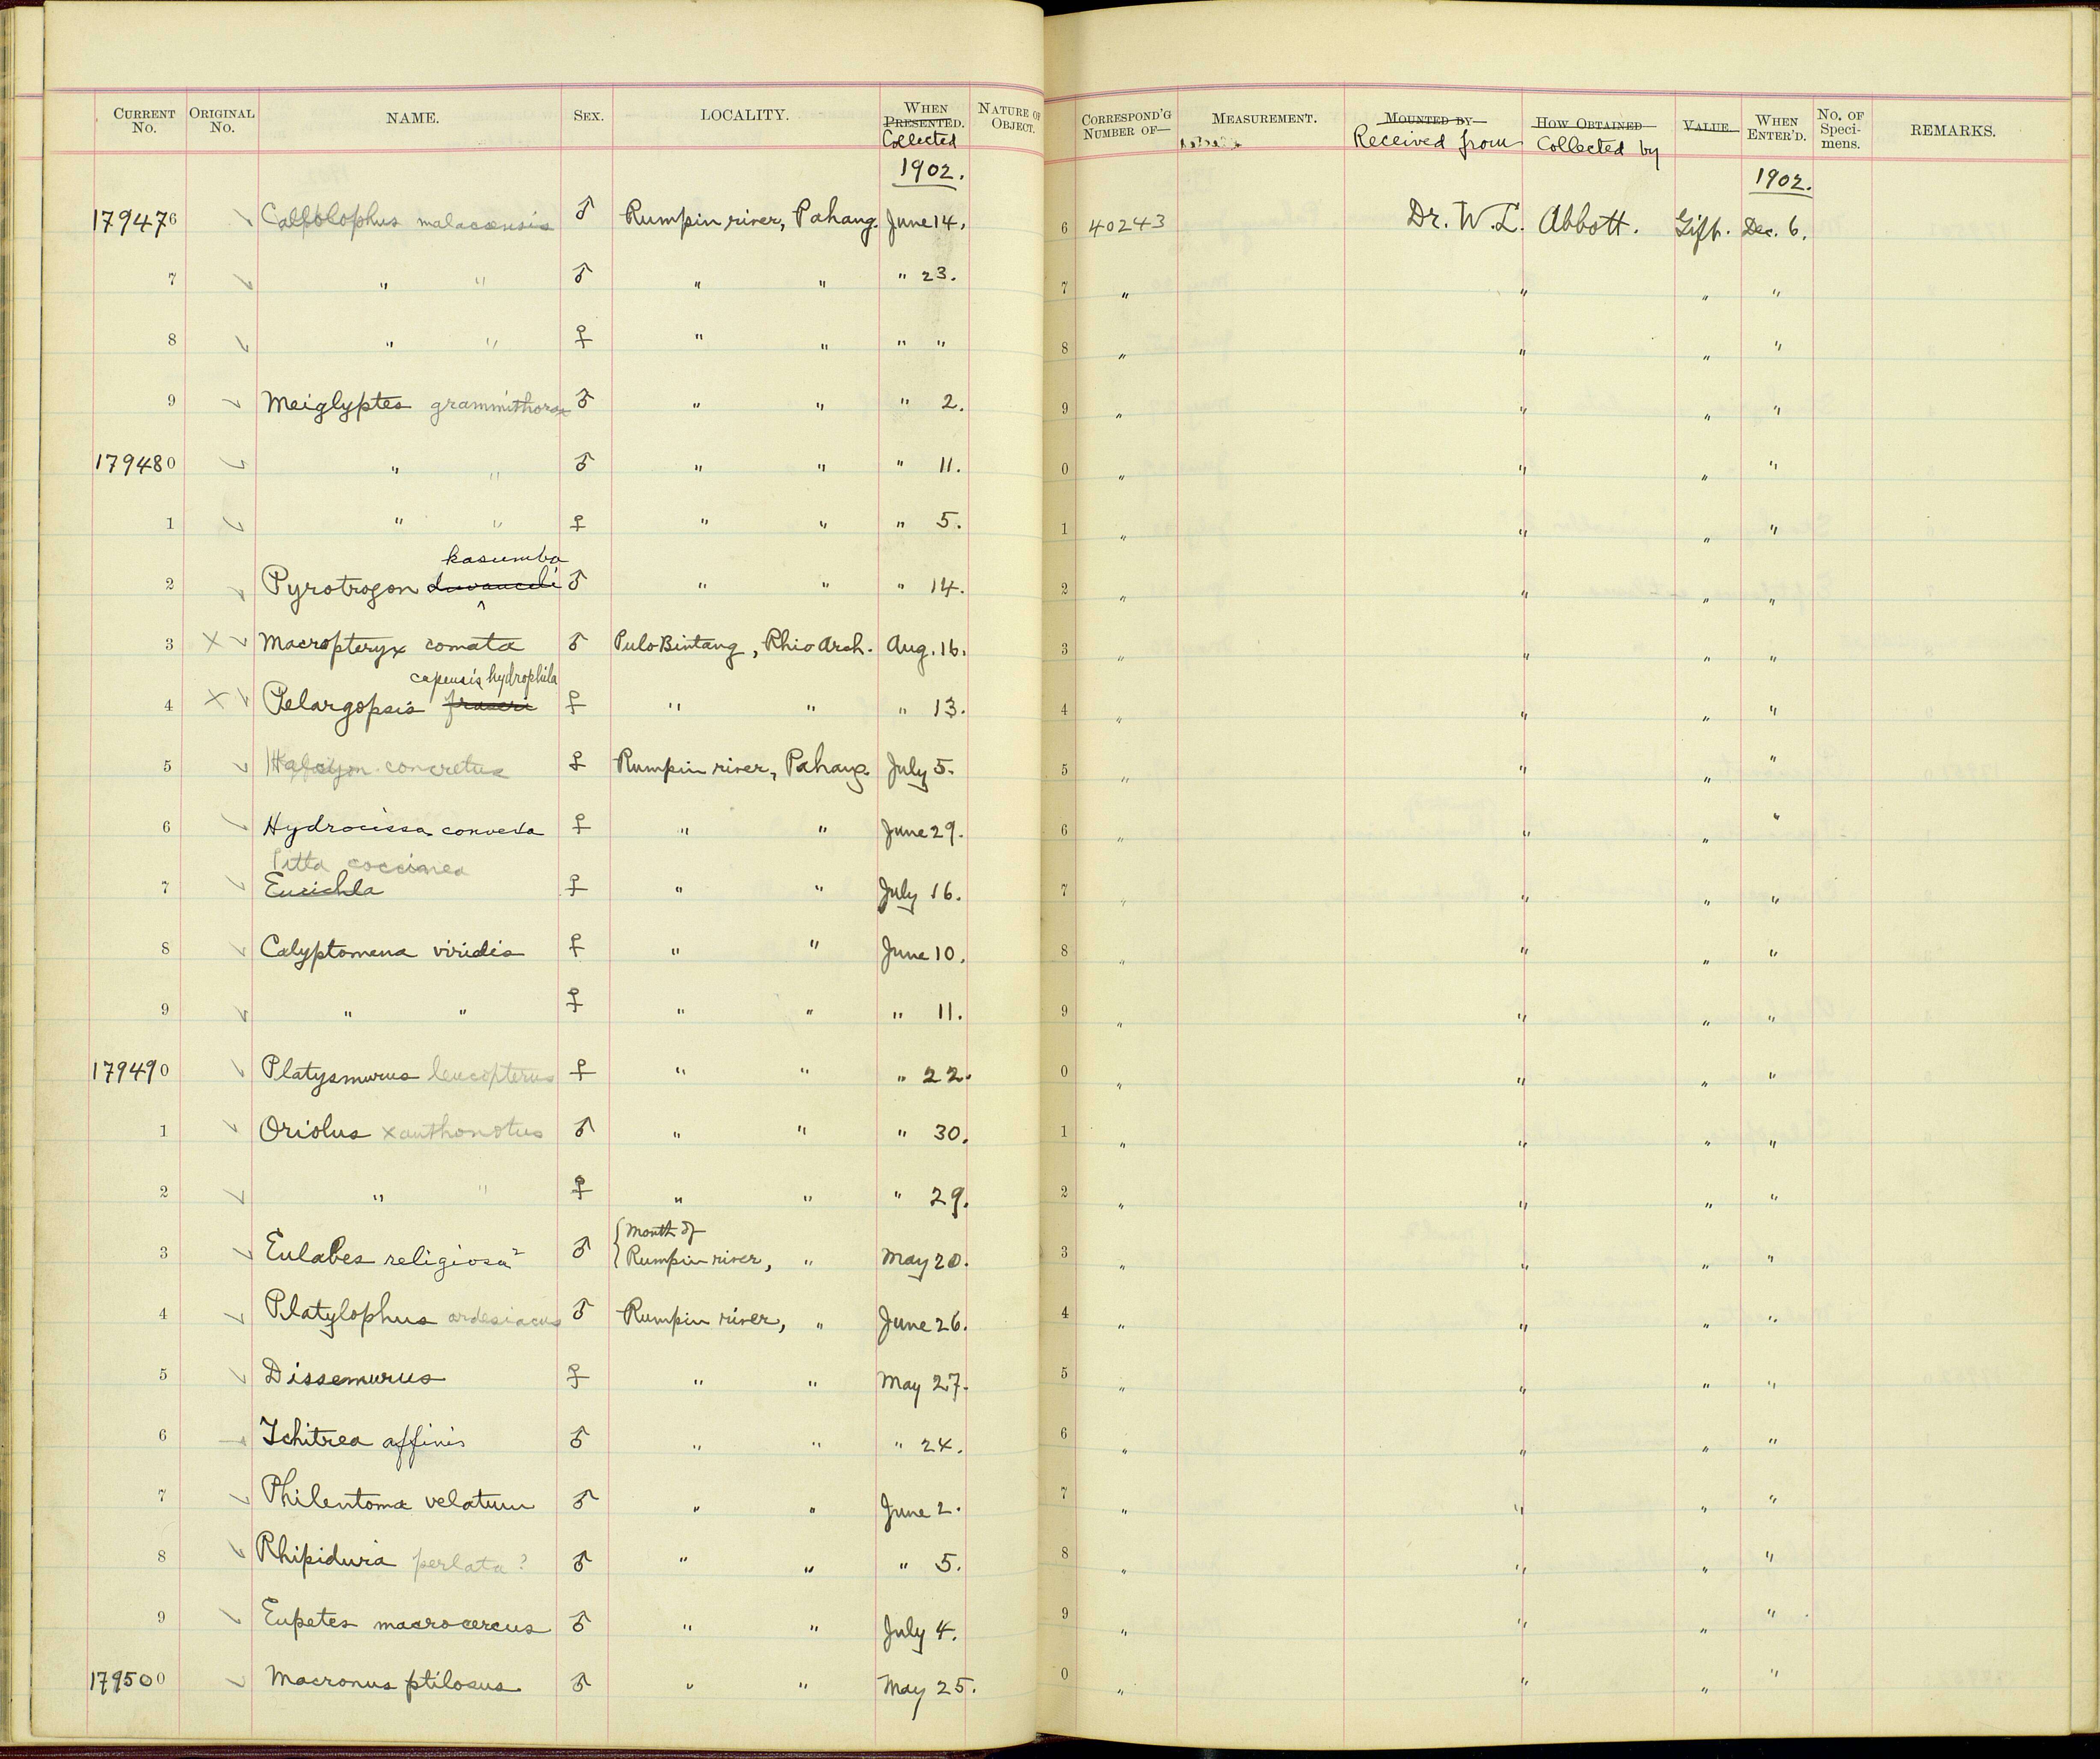 CURRENT No. ORIGINAL No. NAME. SEX. LOCALITY. WHEN PRESENTED. Collected NATURE OF OBJECT. CORRESPOND'G NUMBER OF— MEASUREMENT. MOUNTED BY— Received from HOW OBTAINED— Collected by VALUE. WHEN ENTER'D. No. OF Speci-mens. REMARKS.
1902. 1902.
179476 malaccensis ♂ Rumpin river, Pahang. June 14. 6 40243 Dr. W. L. Abbott. Gift. Dec. 6.
7 " " ♂ " " " 23. 7 " " " "
8 " " ♀ " " " " 8 " " " "
9 Meiglyptes grammithorax ♂ " " " 2. 9 " " " "
179480 " " ♂ " " " 11. 0 " " " "
1 " " ♀ " " " 5. 1 " " " "
kasumba
2 Pyrotrogon duvauceli ♂ " " " 14. 2 " " " "
3 X Macropteryx comata ♂ Pulo Bintang, Rhio Arch. Aug. 16. 3 " " " "
capensis hydrophila
4 X Pelargopsis fraseri ♀ " " " 13. 4 " " " "
5 Halcyon concretus ♀ Rumpin river, Pahang. July 5. 5 " " " "
6 Hydrocissa convexa ♀ " " June 29. 6 " " " "
Pitta coccinea
7 Eucichla ♀ " " July 16. 7 " " " "
8 Calyptomena viridis ♀ " " June 10. 8 " " " "
9 " " ♀ " " " 11. 9 " " " "
179490 Platysmurus leucopterus ♀ " " " 22. 0 " " " "
1 Oriolus xanthonotus ♂ " " " 30. 1 " " " "
2 " " ♀ " " " 29. 2 " " " "
{Month of
3 Eulabes religiosa? ♂ Rumpin river, " May 20. 3 " " " "
4 Platylophus ardesiacus ♂ Rumpin river, " June 26. 4 " " " "
5 Dissemurus ♀ " " May 27. 5 " " " "
6 Tchitrea affinis ♂ " " " 24. 6 " " " "
7 Philentoma velatum ♂ " " June 2. 7 " " " "
8 Rhipidura perlata? ♂ " " " 5. 8 " " " "
9 Eupetes macrocercus ♂ " " July 4. 9 " " " "
179500 Macronus ptilosus ♂ " " May 25. 0 " " " "